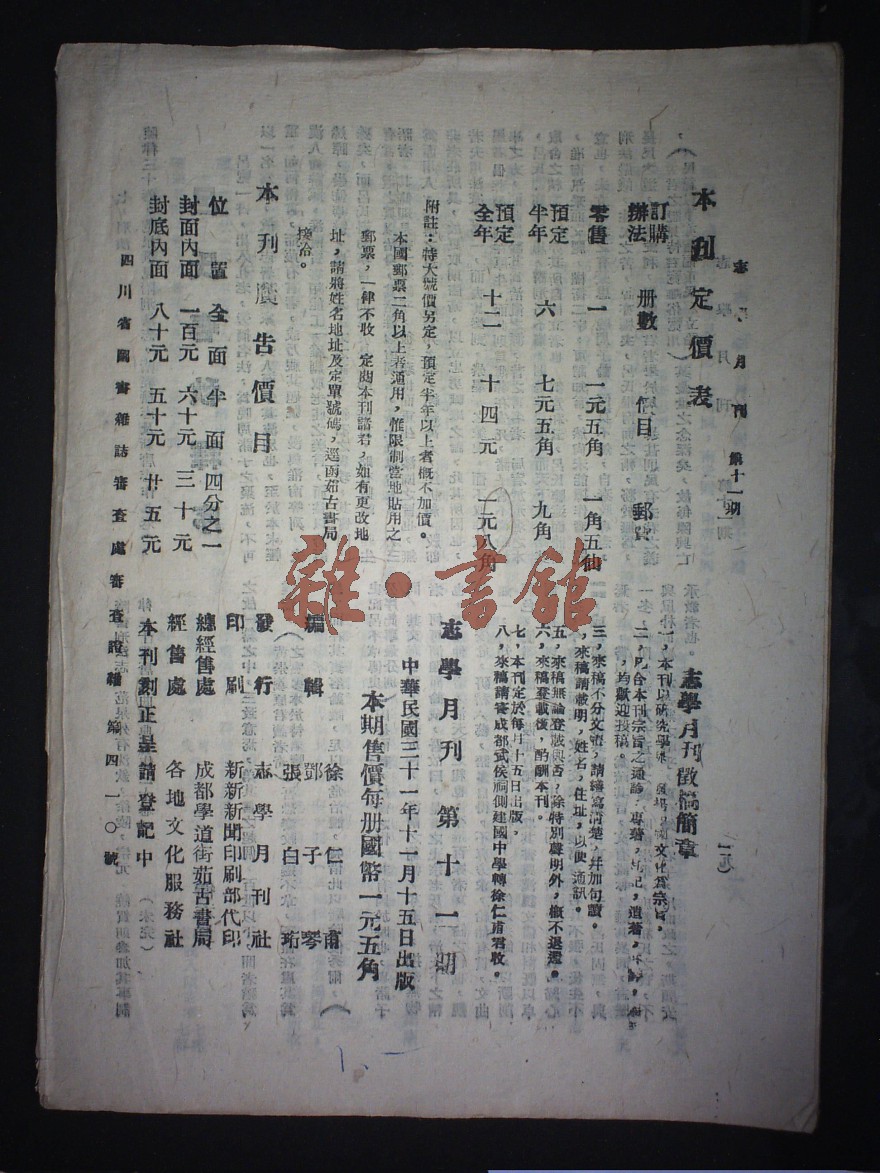 志學月刊 第十一期
一八
本刊定價表
訂購辦法 册數 價目 郵費
零售 一 一元五角 一角五仙
預定半年 六 七元五角 九角
預定全年 十二 十四元 一元八角
附註：特大號價另定，預定半年以上者概不加價。
本國郵票二角以上者通用，惟限制當地貼用之
郵票，一律不收 定閱本刊諸君，如有更改地
址，請將姓名地址及定單號碼，逕函茹古書局
接洽。
本刊廣告價目
位置 全面 半面 四分之一
封面內面 一百元 六十元 三十元
封底內面 八十元 五十元 廿五元
四川省圖書雜誌審查處審查證雜 第四一〇號
志學月刊徵稿簡章
一，本刊以研究學術 發揚 文化爲宗旨，
二，凡合本刊宗旨之通論，專著，札記，遺著，
，均歡迎投稿。
三，來稿不分文言，請繕寫清楚，幷加句讀。
，來稿請載明，姓名，住址，以便通訊。
五，來稿無論登載與否，除特別聲明外，概不退還。
六，來稿登載後，酌酬本刊。
七，本刊定於每月十五日出版，
八，來稿請寄成都武侯祠側建國中學轉徐仁甫君收。
志學月刊第十一期
中華民國三十一年十一月十五日出版
本期售價每册國幣一元五角
編輯 徐仁甫
鄧子琴
張白珩
發行 志學月刊社
印刷 新新新聞印刷部代印
總經售處 成都學道街茹古書局
經售處 各地文化服務社
本刊刻正呈請登記中
雜·書館